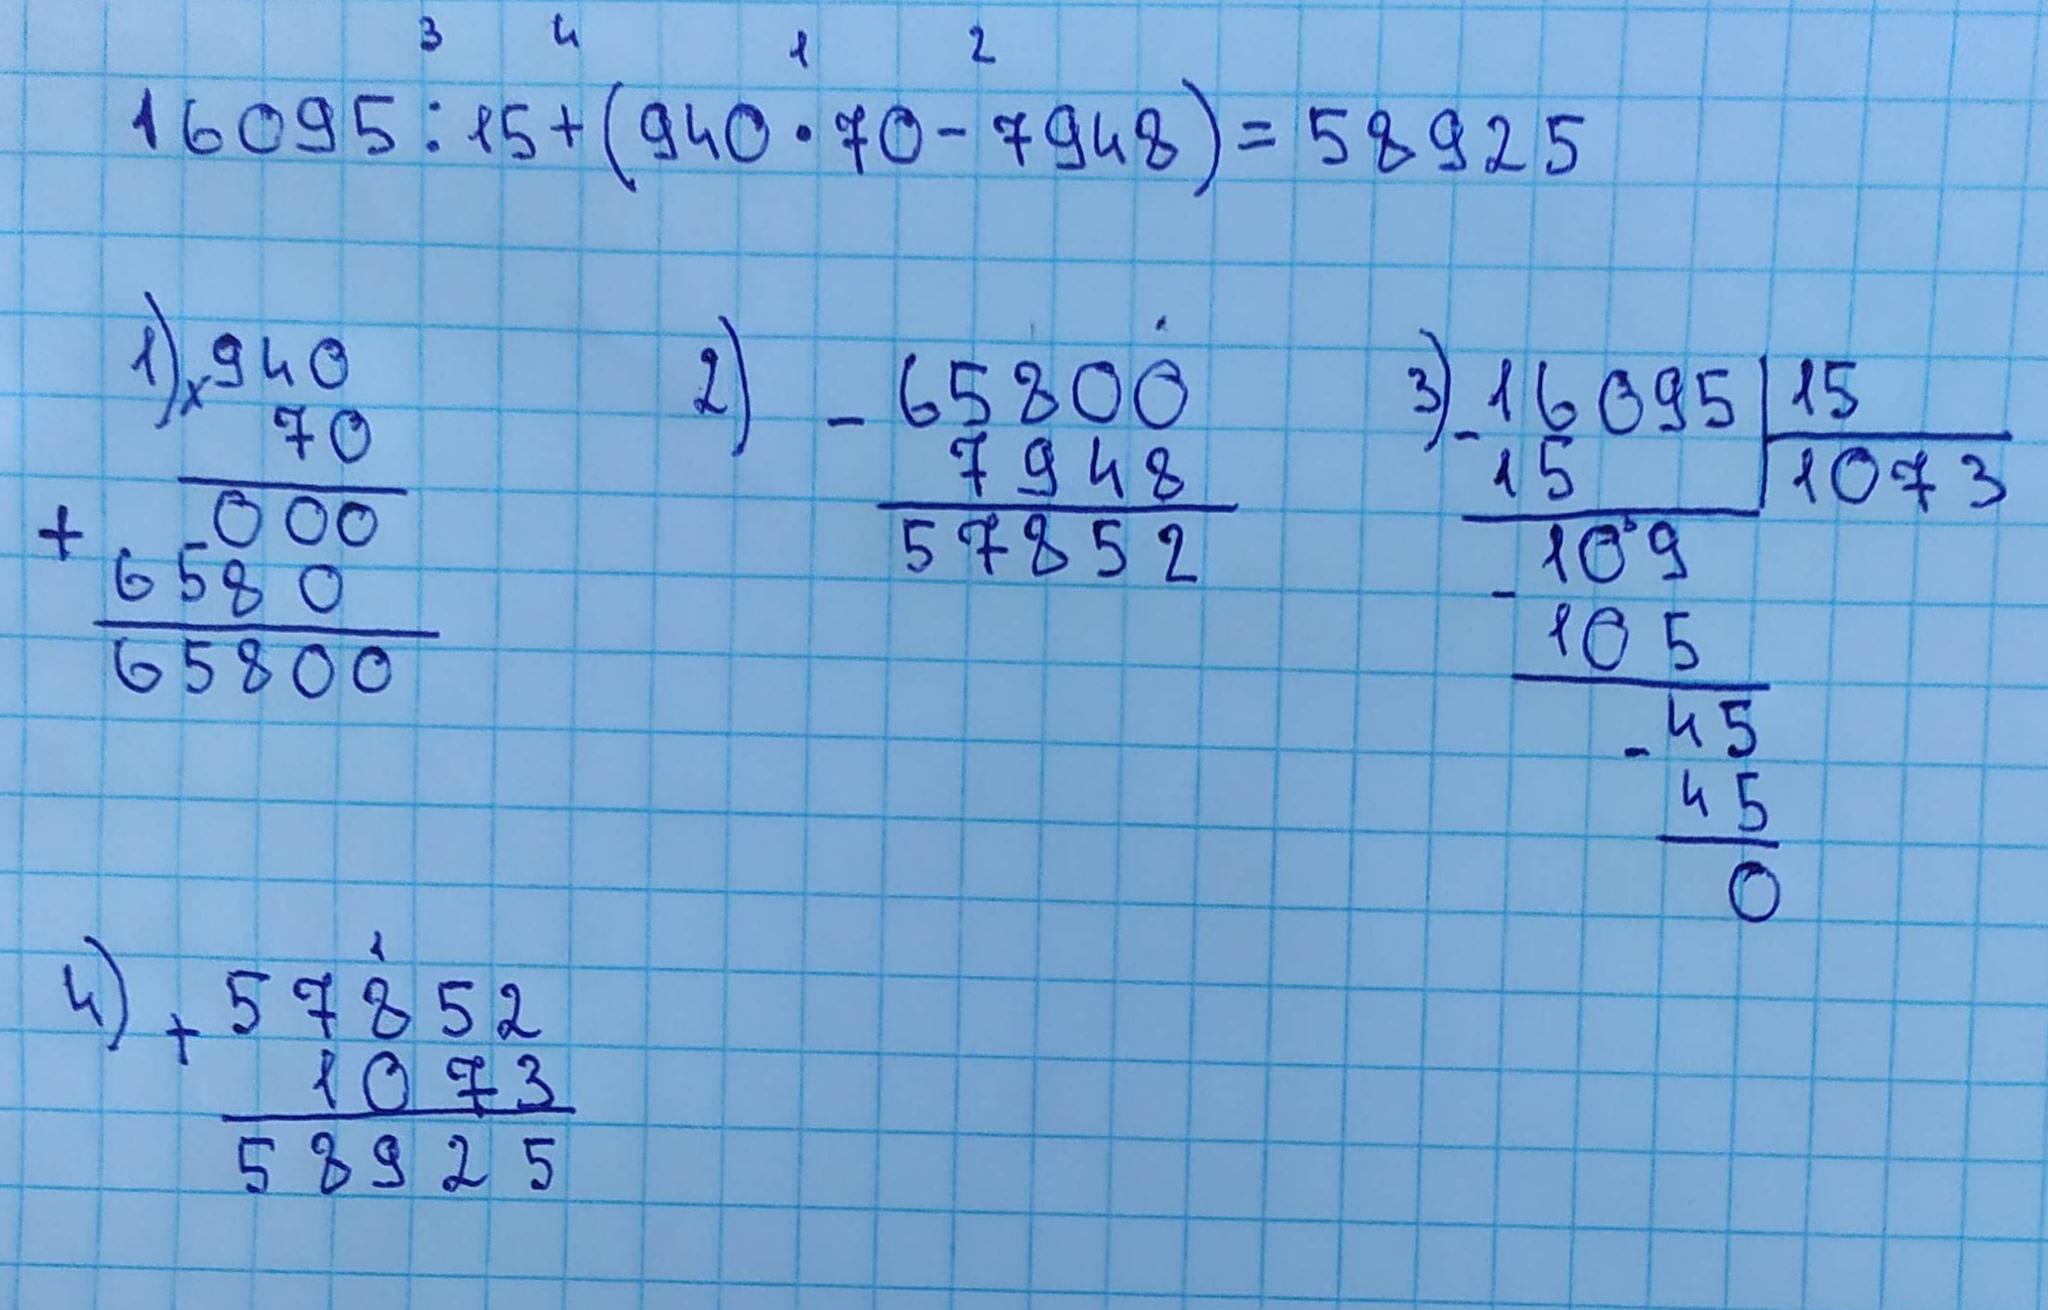 3 4 1 2
16095:15+(940·70-7948)=58925
1) ×940
70
+ 000
6580
65800
2) - 65800
7948
57852
3) -16095 | 15
15 | 1073
109
-
105
-45
45
0
1
4) + 57852
1073
58925